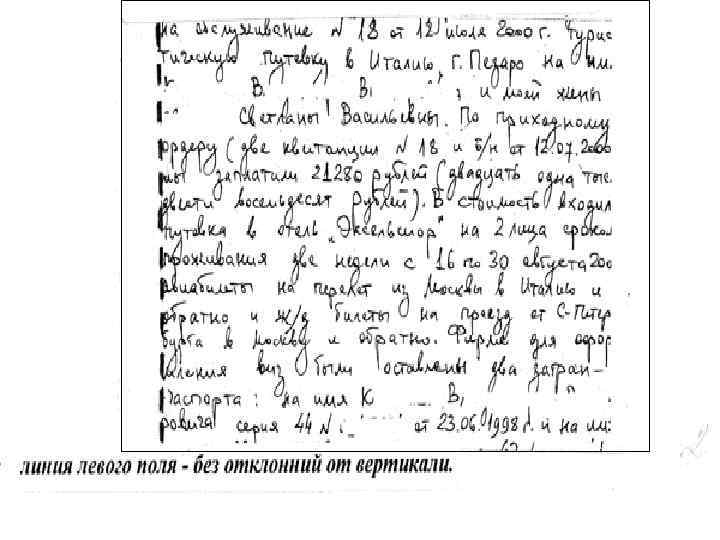 на обслуживание N 18 от 12 июля 2000 г. турис
тическую путевку в Италию, г. Пезаро на им.
В. В. и моей жены
Светланы Васильевны. По приходному
ордеру (две квитанции N 18 и б/н от 12.07.2000
мы заплатили 21280 рублей (двадцать одна тыс.
двести восемьдесят рублей). В стоимость входил
путевка в отель "Эксельсиор" на 2 лица сроком
проживания две недели с 16 по 30 августа 200
авиабилеты на перелет из Москвы в Италию и
обратно и ж/д билеты на проезд от С-Петер
бурга в Москву и обратно. Фирме для офор
мления виз были оставлены два загран-
паспорта: на имя К В.
ровича серия 44 N от 23.06.1998 г. и на им:
линия левого поля - без отклонний от вертикали.